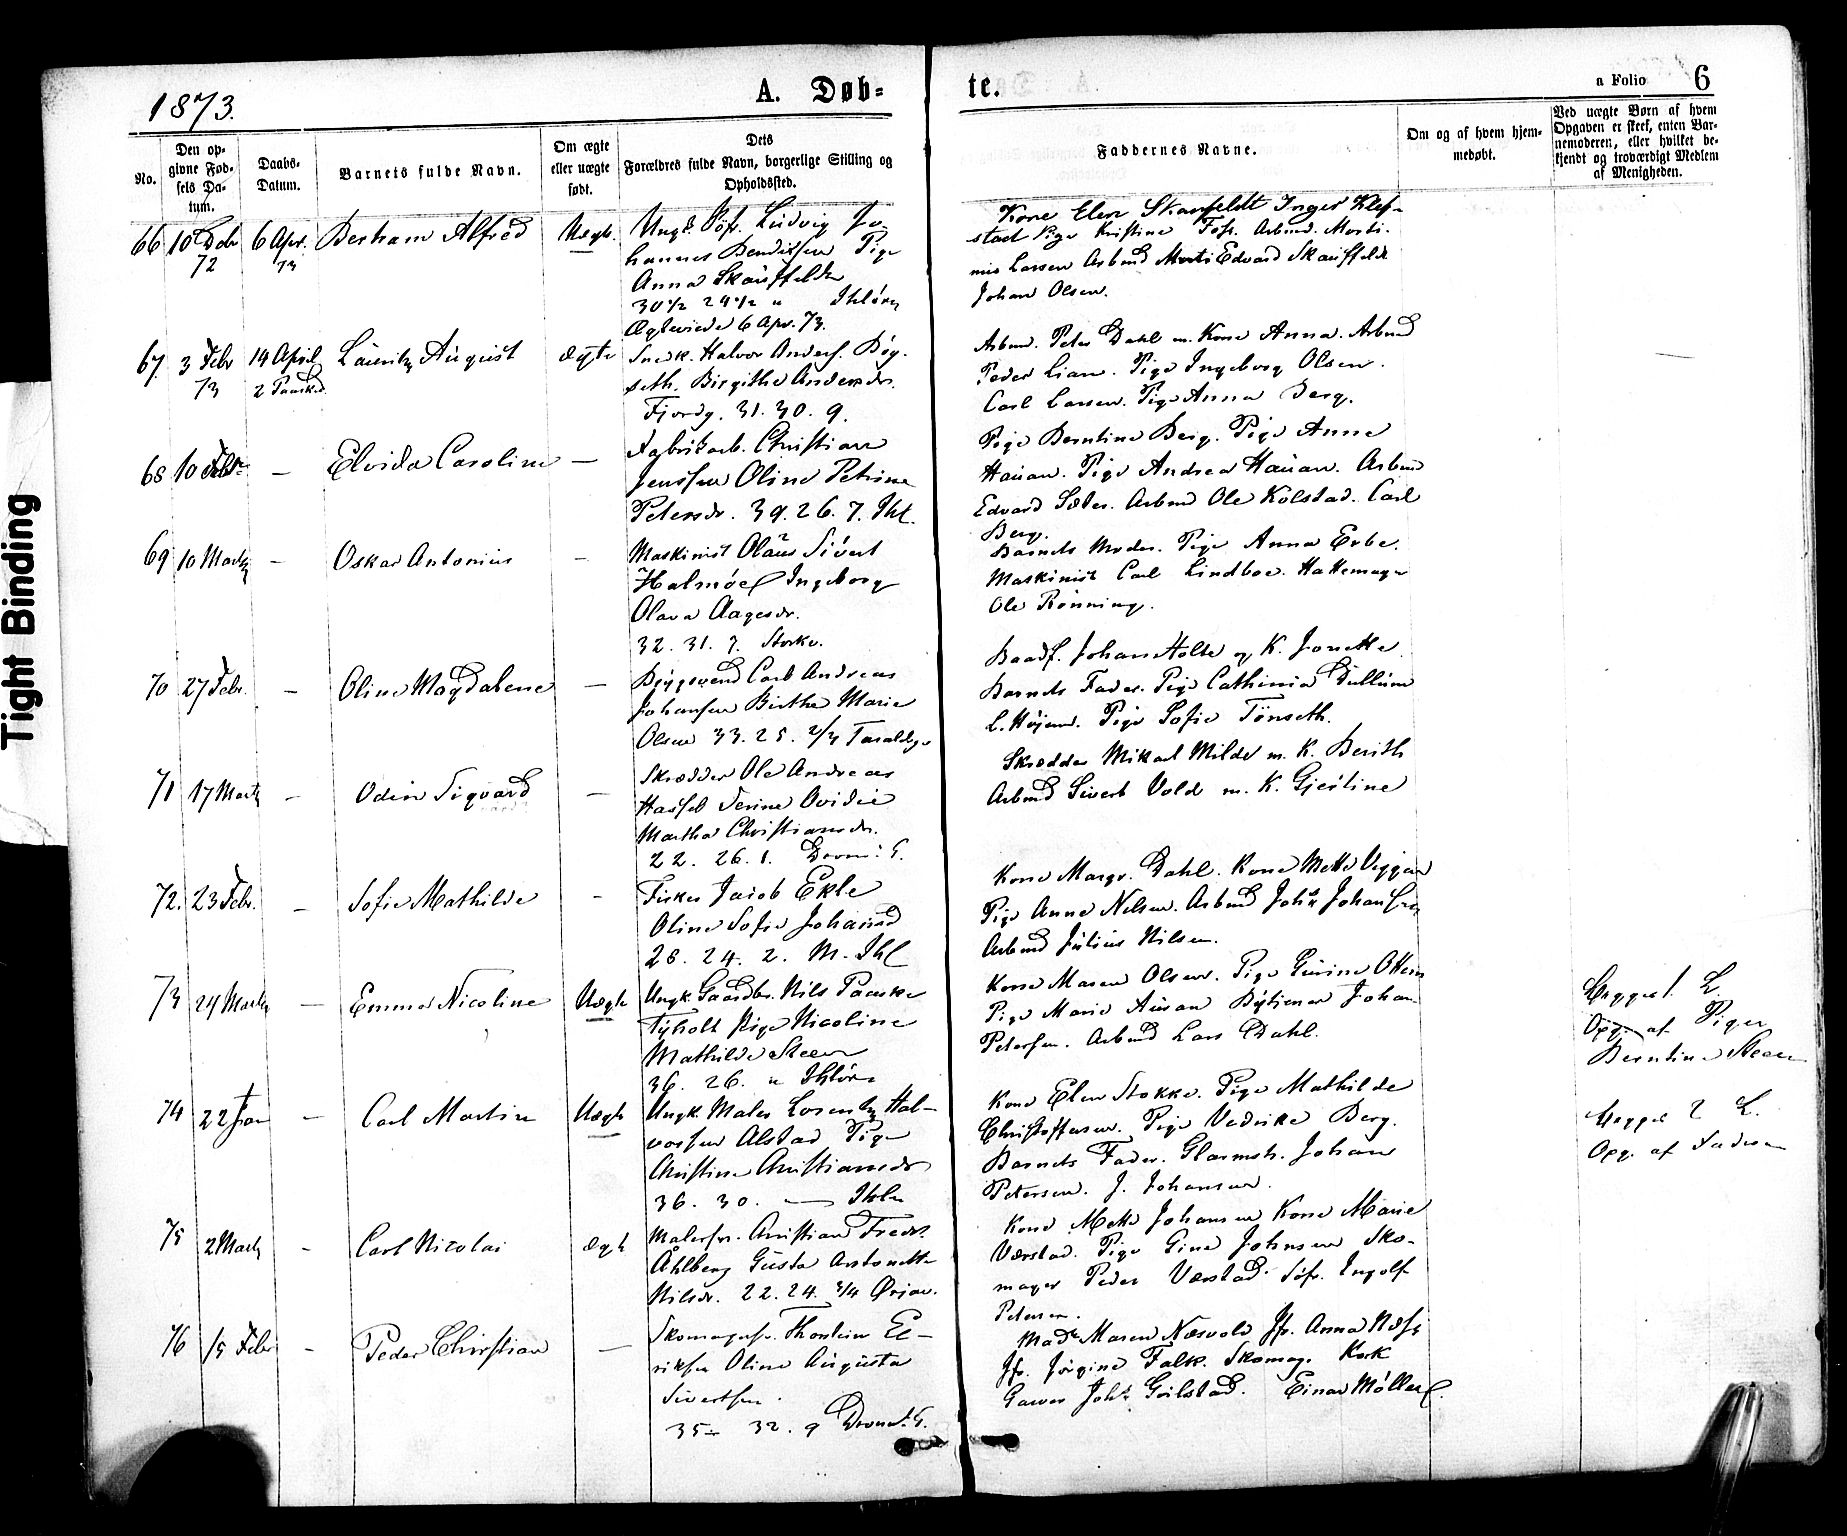 1873.
A. Døb=
te.
a Folio 6
No.
Den op-
givne Fød-
sels Da-
tum.
Daabs-
Datum.
Barnets fulde Navn.
Om ægte
eller uægte
født.
Dets
Forældres fulde Navn, borgerlige Stilling og
Opholdssted.
Faddernes Navne.
Om og af hvem hjem-
medøbt.
Ved uægte Børn af hvem
Opgaven er skeet, enten Bar-
nemoderen, eller hvilket be-
kjendt og troværdigt Medlem
af Menigheden.
66 10 Dcbr 72
6 Apr. 73
Berham Alfred
Uægt.
Ungk. Ludvig Jo-
hannes Bendiksen Pige
Anna Skauffeldt
30 1/2 24 1/2 " Ihløre
Ægteviede 6 Apr. 73.
Kone Elen Skauffeldt Inger Klef-
stad Pige Kristine Arbmd. Marti-
nus Larsen Arbmd Edvard Skauffeldt
Johan Olsen.
67. 3 Febr 73
14 April
2 Paasked.
Lauritz August
ægte
Snedk. Halvor Anders. Bøg-
seth. Birgitha Andersdr.
Fjordg. 31. 30. 9.
Arbmd. Peter Dahl m. Kone Anna. Arbmd
Peder Lian. Pige Ingeborg Olsen.
Carl Larsen. Pige Anna Berg.
68 10 Febr
-
Elvida Caroline
-
Fabrikarb. Christian
Jenssen Oline Petrine
Petersdr. 39. 26. 7. Ihl.
Pige Berntine Berg. Pige Anne
Hauan. Pige Andrea Hauan. Arbmd
Edvard Sæter. Arbmd Ole Kolstad. Carl
Berg.
69 10 Marts
-
Oskar Antonius
-
Maskinist Olaus Sivert
Halmøe Ingeborg
Olava Aagesdr.
32. 31. 7. Storkv.
Barnets Moder. Pige Anna Erbe.
Maskinist Carl Lindboe. Hattemager
Ole Rönning.
70 27 Febr.
-
Oline Magdalene
-
Bÿgsvend Carl Andreas
Johansen Birthe Marie
Olsen 33. 25. 2/3
Baadf. Johan Holte og K. Jonette
Barnets Fader. Pige Cathinia Dullum
L. Højem. Pige Sofie Tönseth.
71 17 Marts
-
Odin Sigvard
-
Skrædder Ole Andreas
Hassel Serine Ovidie
Martha Christiansdr.
22. 26. 1. Dronn. G.
Skrædder Mikael Milde m. K. Berith
Arbmd Sivert Vold m. K. Gjertine
72. 23 Febr.
-
Sofie Mathilde
-
Fisker Jacob Ekle
Oline Sofie Johansd
28. 24. 2. M. Ihl
Kone Margr. Dahl. Kone Mette Viggen
Pige Anne Nelsen. Arbmd Johan Johansen
Arbmd Julius Nilsen.
73 24 Marts
-
Emma Nicoline
Uægte
Ungk Gaardbr. Nils Paaske
Tÿholt Pige Nicoline
Mathilde Steen
36. 26. " Ihlöre
Kone Maren Olsen. Pige Gurine Ottem
Pige Marie Auran Johan
Petersen. Arbmd Lars Dahl.
Begges 1. L.
Opg. af Pigen
Berntine Steen
74 22 Jan
-
Carl Martin
Uægte
Ungk. Maler Lorentz Hal-
vorsen Alstad Pige
Christine Christiansdr
36. 30. — Ihlen
Kone Elen Stokke. Pige Mathilde
Christoffersen. Pige Vedrike Berg.
Barnets Fader. Glarmstr. Johan
Petersen. J. Johansen.
Begges 2 L.
Opg. af Faderen
75 2 Marts
-
Carl Nicolai
ægte
Malersv. Christian Fredr.
Åhlberg Gusta Antonette
Nilsdr. 22. 24. 3/4 Ørjav.
Kone Mette Johansen Kone Marie
Værstad. Pige Gina Johnsen Sko-
mager Peder Værstad. Ingolf
Petersen.
76 15 Febr
-
Peder Christian
—
Skomagersv. Thorstein Ee-
riksen Oline Augusta
Sivertsen.
35 — 32. 9 Dronn. G.
Mad. Maren Næsvold Jfr. Anna Næss
Jfr. Jörgine Falk. Skomag. Kork
Garver Joh. Gjilstad. Einar Möller.
Tight Binding